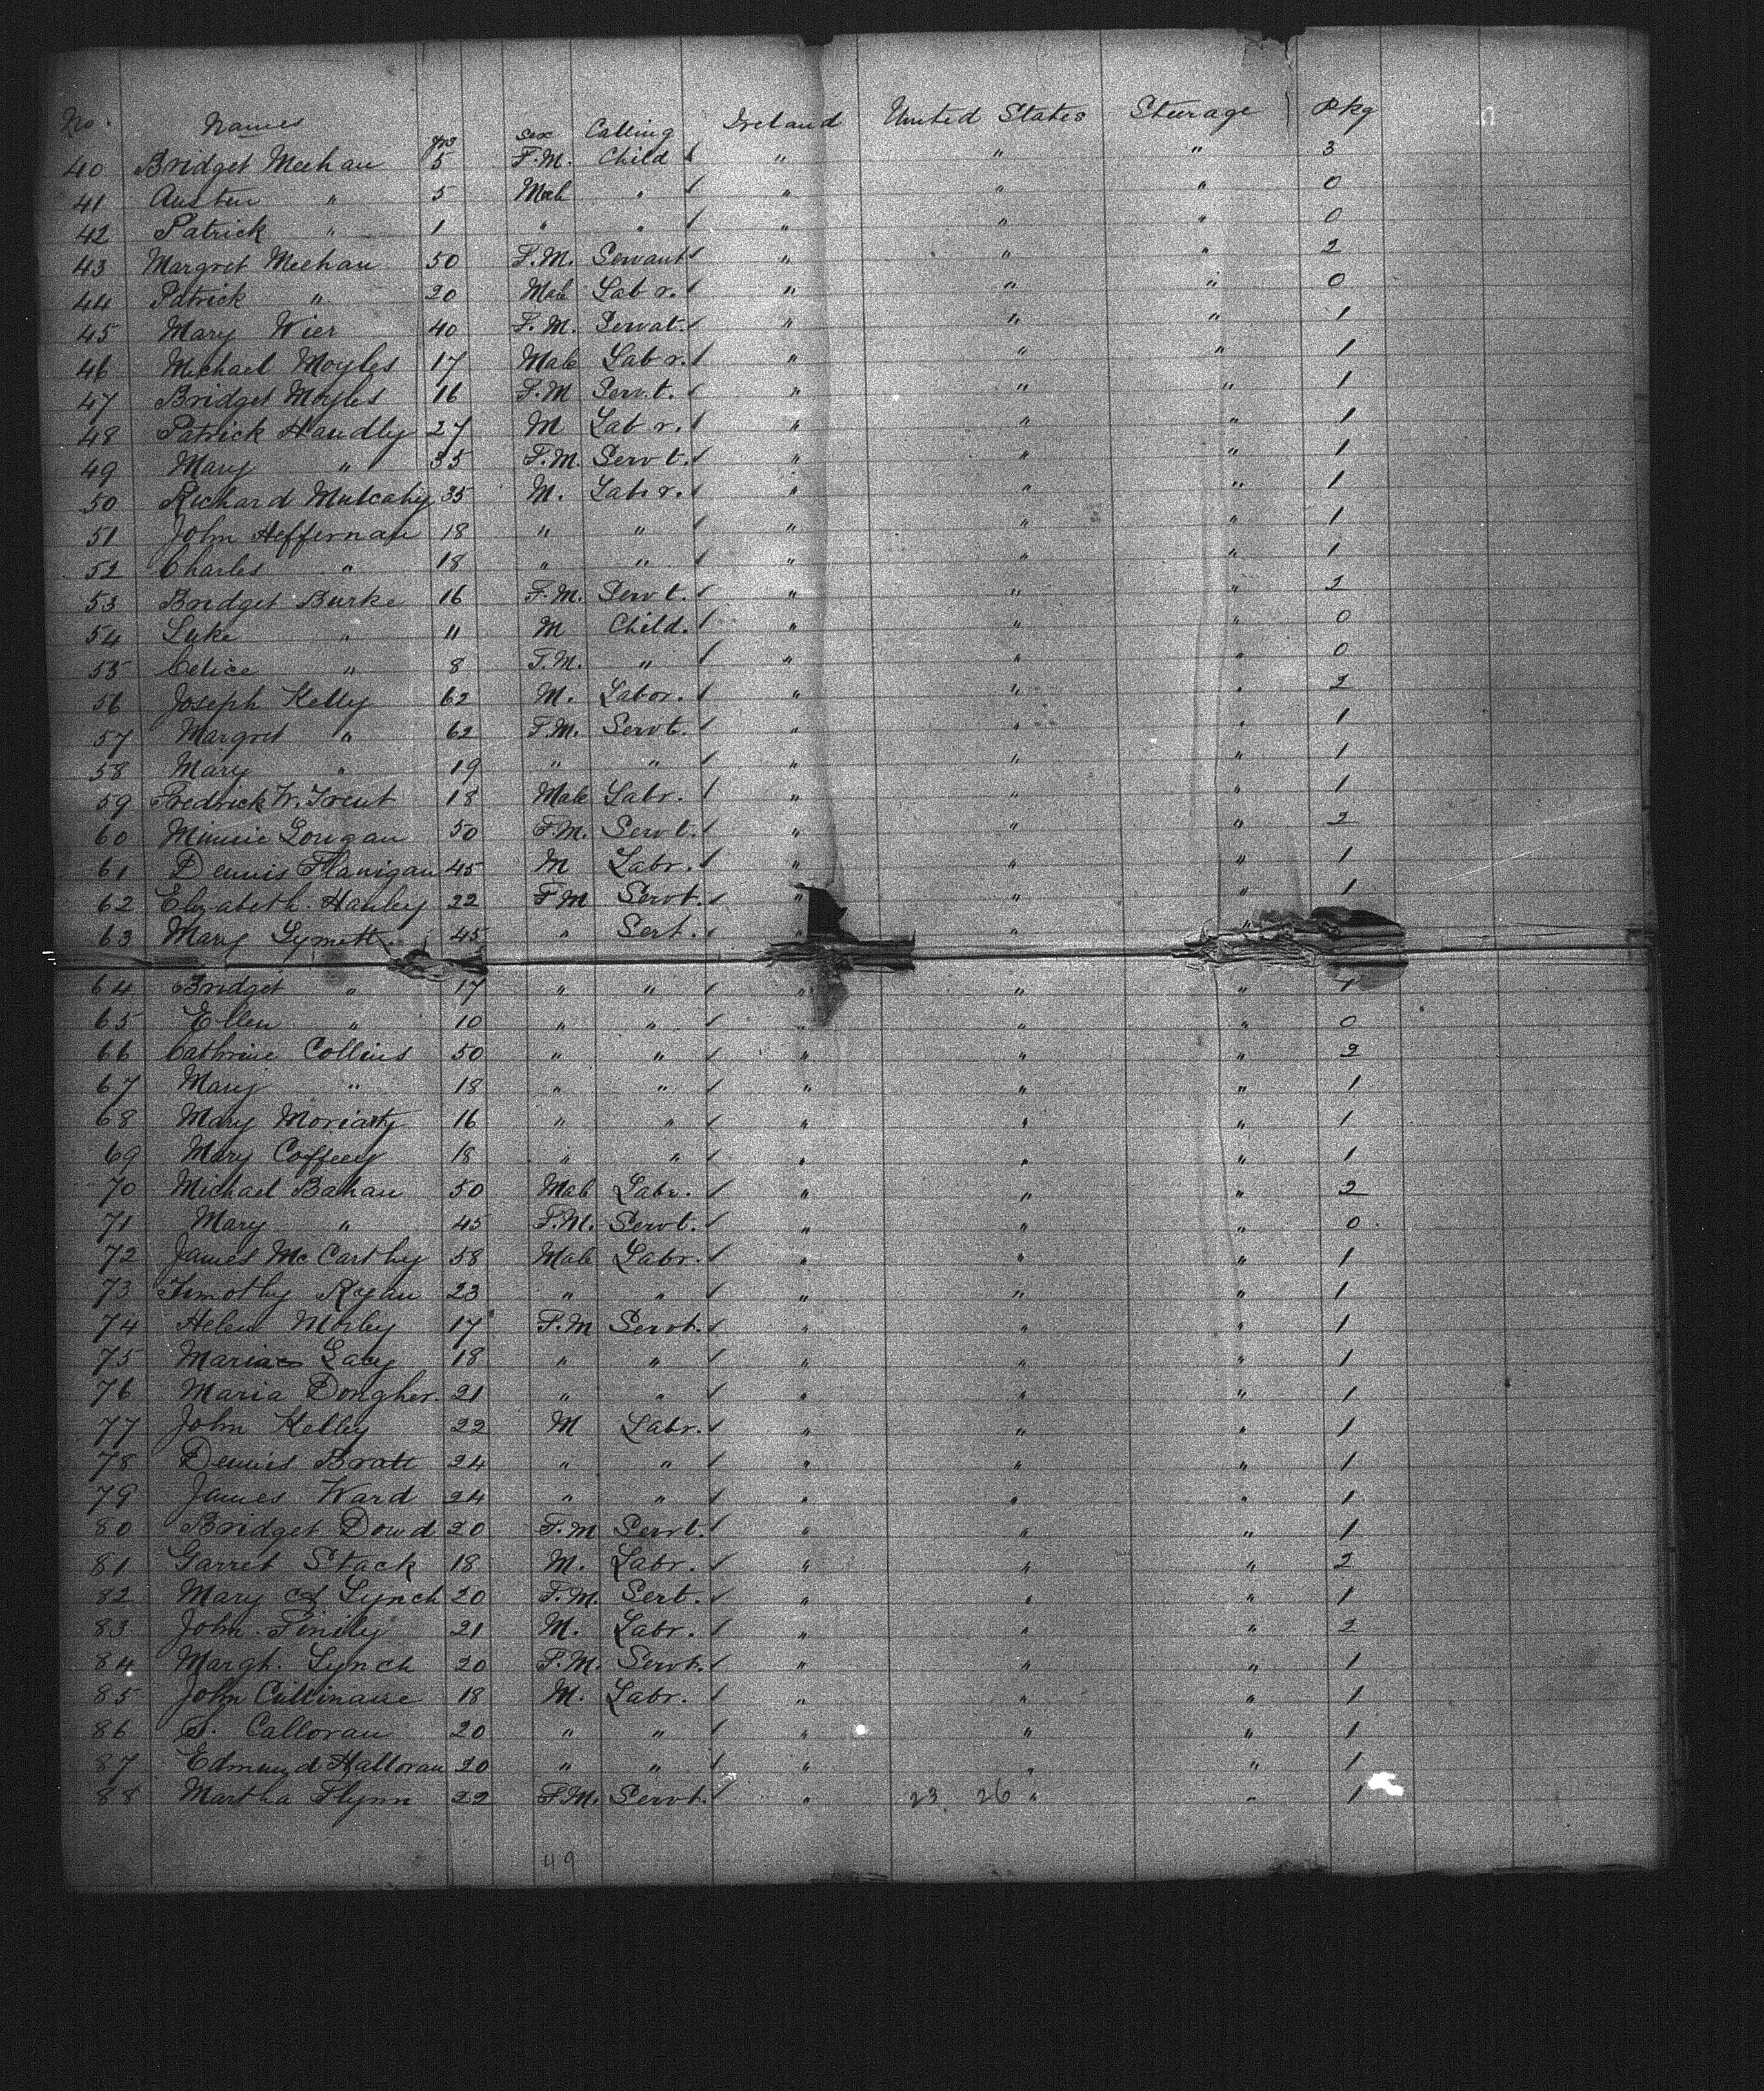 No. Names yrs Sex Calling Ireland United States Steerage Pkg
40 Bridget Meehan 5 F.M. Child " " " 3
41 Austin " 5 Male " " " " 0
42 Patrick " 1 " " " " " 0
43 Margret Meehan 50 F.M. Servant " " " 2
44 Patrick " 20 Male Labr. " " " 0
45 Mary Wier 40 F.M. Servat. " " " 1
46 Michael Moyles 17 Male Labr. " " " 1
47 Bridget Moyles 16 F.M Servt. " " " 1
48 Patrick Handly 27 M Labr. " " " 1
49 Mary " 35 F.M. Servt. " " " 1
50 Richard Mulcahy 35 M. Labr. " " " 1
51 John Heffernan 18 " " " " " 1
52 Charles " 18 " " " " " 1
53 Bridget Burke 16 F.M. Servt. " " " 2
54 Luke " 11 M Child. " " " 0
55 Celice " 8 F.M. " " " " 0
56 Joseph Kelly 62 M. Labor. " " " 2
57 Margret " 62 F.M. Servt. " " " 1
58 Mary " 19 " " " " " 1
59 Fredrick W. Trent 18 Male Labr. " " " 1
60 Minnie 50 F.M. Servt. " " " 2
61 Dennis Flanigan 45 M Labr. " " " 1
62 Elizabeth Hanley 22 F M Servt. " " " 1
63 Mary 45 " Sert. " " "
64 Bridget " 17 " " " " " 1
65 Ellen " 10 " " " " " 0
66 Cathrine Collins 50 " " " " " 2
67 Mary " 18 " " " " " 1
68 Mary Moriarty 16 " " " " " 1
69 Mary Coffeey 18 " " " " " 1
70 Michael Bahan 50 Male Labr. " " " 2
71 Mary " 45 F.M. Servt. " " " 0
72 James McCarthy 58 Male Labr. " " " 1
73 Timothy Ryan 23 " " " " " 1
74 Helen Morley 17 F.M Servt. " " " 1
75 Lacy 18 " " " " " 1
76 Maria Dougher. 21 " " " " " 1
77 John Kelley 22 M Labr. " " " 1
78 Dennis Bratt 24 " " " " " 1
79 James Ward 24 " " " " " 1
80 Bridget Dowd 20 F.M Servt. " " " 1
81 Garret Stack 18 M. Labr. " " " 2
82 Mary Lynch 20 F.M. Sert. " " " 1
83 John Finily 21 M. Labr. " " " 2
84 Margt. Lynch 20 F.M. Servt. " " " 1
85 John Cullinane 18 M. Labr. " " " 1
86 Calloran 20 " " " " " 1
87 Edmund Halloran 20 " " " " " 1
88 Martha Flynn 22 F.M. Servt. " 23 26 " " 1
49